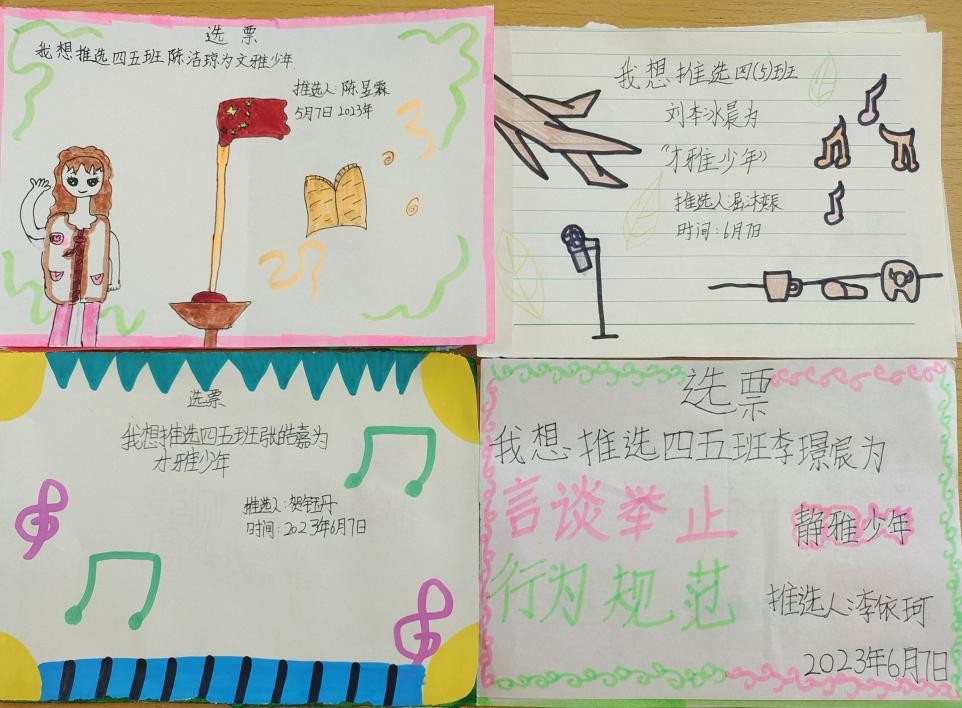 选票
我想推选四五班陈洁琼为文雅少年
推选人：陈昱霖
5月7日2023年
我想推选四(5)班
刘李冰晨为
“才雅少年”
推选人：
时间：6月7日
选票
我想推选四五班张皓嘉为
才雅少年
推选人：贺钰丹
时间：2023年6月7日
选票
我想推选四五班李璟宸为
言谈举止
静雅少年
行为规范
推选人：李依珂
2023年6月7日